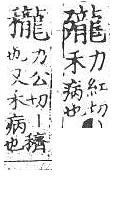 力紅切
禾病也
䆍力公切丨穧
也又禾病也